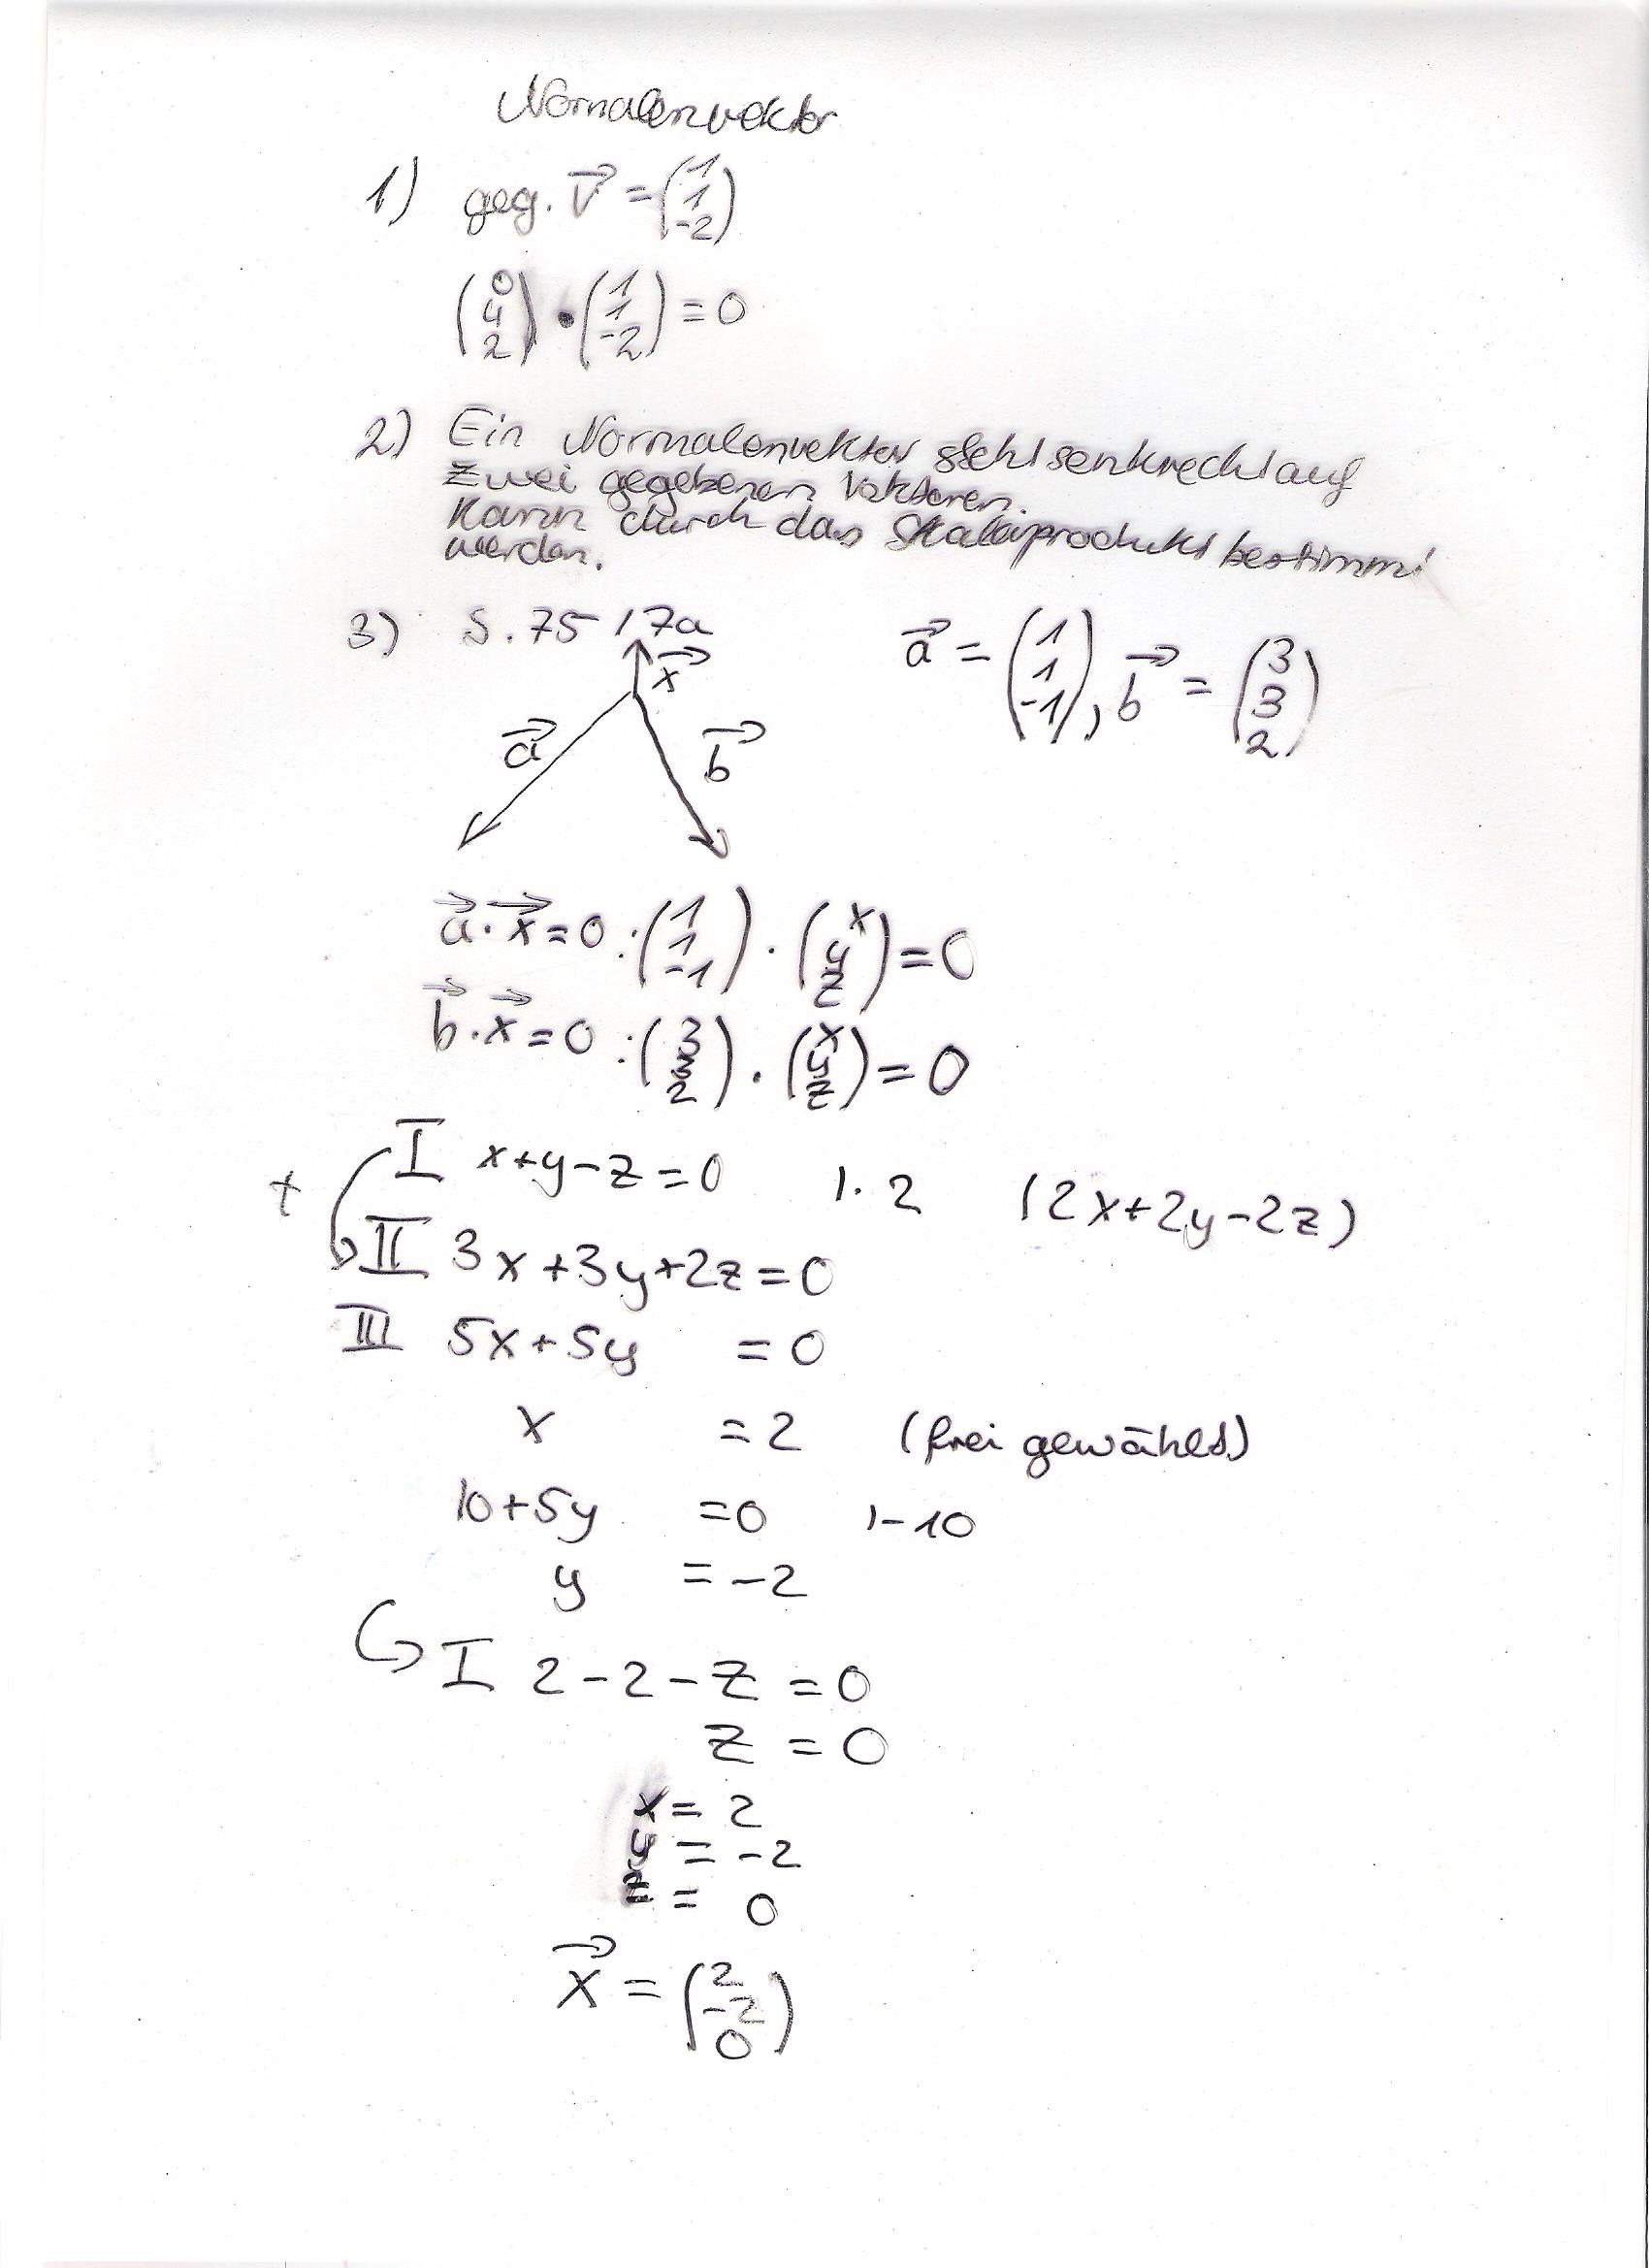 Normalenvektor
1) geg. v⃗ = (1 1 -2)
(0 4 2) • (1 1 -2) = 0
2) Ein Normalenvektor steht senkrecht auf
zwei gegebenen Vektoren.
Kann durch das Skalarprodukt bestimmt
werden.
3) S. 75 17a
a⃗ = (1 1 -1), b⃗ = (3 3 2)
x⃗
a⃗ b⃗
a⃗ · x⃗ = 0 : (1 1 -1) · (x y z) = 0
b⃗ · x⃗ = 0 : (3 3 2) · (x y z) = 0
I x+y-z=0 |·2 (2x+2y-2z)
+
II 3x+3y+2z=0
III 5x+5y =0
x =2 (frei gewählt)
10+5y =0 |-10
y =-2
I 2-2-z=0
z=0
x=2
y=-2
z=0
x⃗ = (2 -2 0)